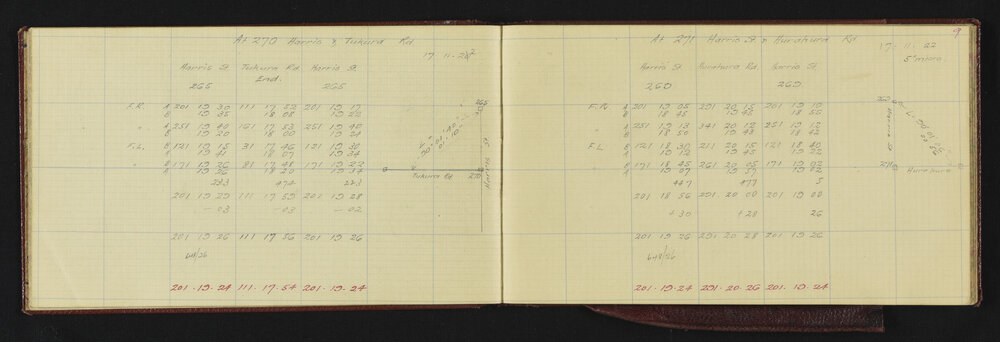 At 270 Harris & Tukura Rd
17-11-22
Harris St. Tukura Rd. Harris St.
End.
265 265
F.R. A 201 19 30 111 17 52 201 19 17
B 19 35 18 08 19 22
" A 251 19 40 161 17 53 251 19 40
B 19 20 18 00 19 24
F.L. B 121 19 15 31 17 46 121 19 30
A 19 42 18 07 19 34
" B 171 19 26 81 17 48 171 19 22
A 19 26 18 20 19 34
233 474 223
201 19 29 111 17 59 201 19 28
-03 -03 -02
201 19 26 111 17 56 201 19 26
201-19-24 111-17-54 201-19-24
265
Harris St
Tukura Rd 270
9
At 271 Harris St & Hurahura Rd
17-11-22
5" micro
Harris St. Hurahura Rd. Harris St.
269 269
F.R. A 201 19 05 291 20 15 201 19 10
B 18 45 19 45 18 50
" A 251 19 13 341 20 12 251 19 12
B 18 50 19 43 18 42
F.L. B 121 18 30 211 20 15 121 18 40
A 19 12 19 45 18 55
" B 171 18 45 261 20 05 171 19 02
A 19 07 19 57 19 02
447 477 5
201 18 56 291 20 00 201 19 00
+30 +28 26
201 19 26 291 20 28 201 19 26
201-19-24 291-20-26 201-19-24
Harris St
271
Hurahura